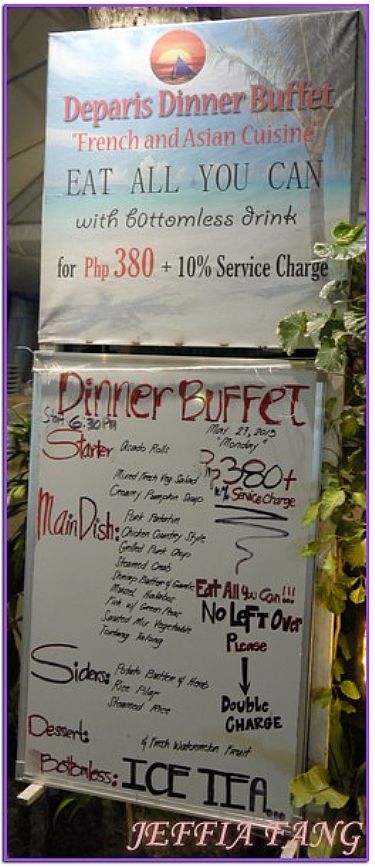 Deparis Dinner Buffet
"French and Asian Cuisine"
EAT ALL YOU CAN
with bottomless drink
for Php 380 + 10% Service Charge
Dinner Buffet
Start 6:30 PM
May 27, 2013
"Monday"
Starter Asado Rolls
Mixed Fresh Veg Salad
Creamy Pumpkin Soup
Php 380+
10% Service Charge
Main Dish: Pork
Chicken Country Style
Grilled Pork Chop
Steamed Crab
Shrimp Butter & Garlic
Mussel
Fish w/ Green Peas
Sauted Mix Vegetable
Tortang Talong
Eat All You Can!!!
No Left Over
Please
Double
CHARGE
Siders: Potato Butter & Herb
Rice Pilaf
Steamed Rice
Dessert:
& Fresh Watermelon Fruit
Bottomless: ICE TEA...
JEFFIA FANG